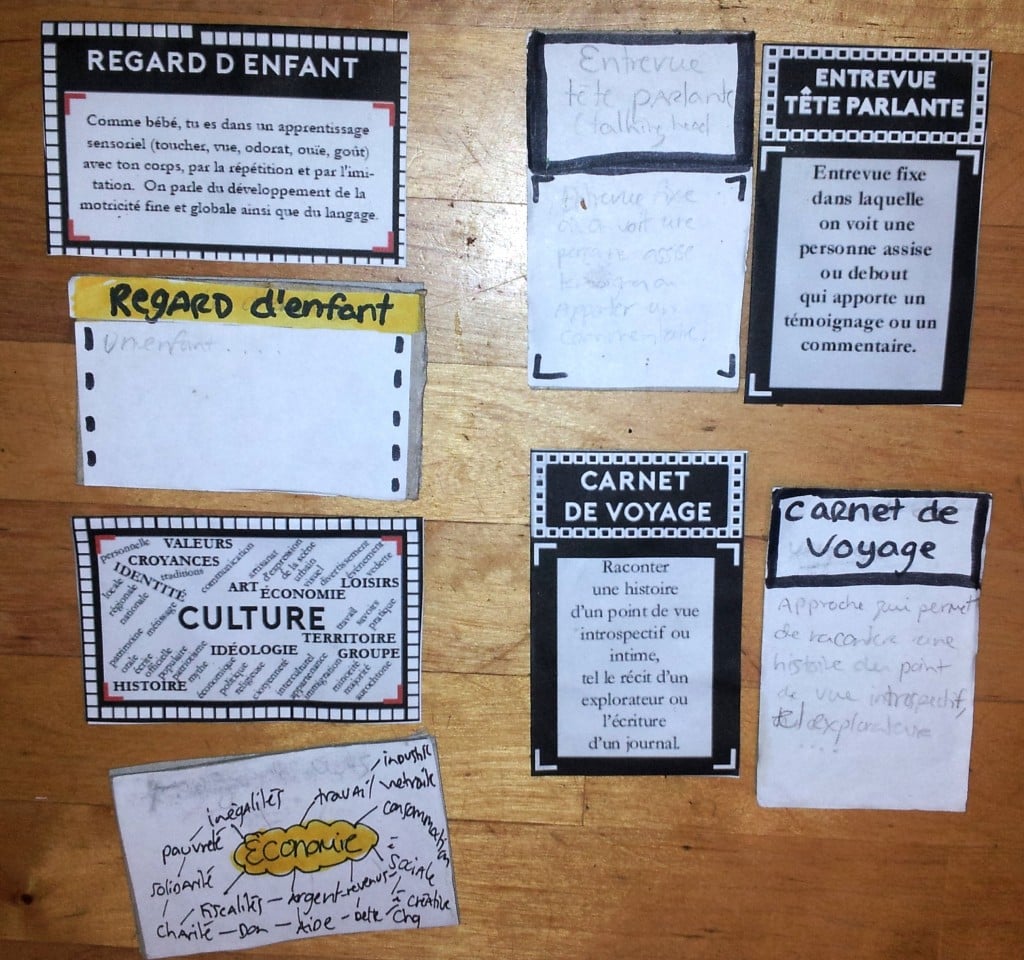 REGARD D ENFANT
Comme bébé, tu es dans un apprentissage
sensoriel (toucher, vue, odorat, ouïe, goût)
avec ton corps, par la répétition et par l'imi-
tation. On parle du développement de la
motricité fine et globale ainsi que du langage.
REGARD d'enfant
Un enfant . . . .
personnelle
VALEURS
CROYANCES
IDENTITÉ
traditions
locale
régionale
nationale
métissage
communication
ART
artisanat
d'expression
de la scène
urbain
visuel
divertissement
événement
vedette
LOISIRS
ÉCONOMIE
CULTURE
travail
savoirs
pratique
TERRITOIRE
IDÉOLOGIE
GROUPE
patrimoine
orale
écrite
officielle
populaire
patriotisme
mythe
HISTOIRE
économique
politique
religieuse
citoyenneté
interculturel
appartenance
immigration
minorité
majorité
autochtone
industrie
travail
retraite
inégalités
consommation
pauvreté
Économie
solidarité
sociale
Fiscalités – Argent – revenus
créative
Charité – Don – Aide – Dette
Entrevue
tête parlante
(talking head
Entrevue fixe
où on voit une
personne assise
Apporter un
commentaire.
ENTREVUE
TÊTE PARLANTE
Entrevue fixe
dans laquelle
on voit une
personne assise
ou debout
qui apporte un
témoignage ou un
commentaire.
CARNET
DE VOYAGE
Raconter
une histoire
d'un point de vue
introspectif ou
intime,
tel le récit d'un
explorateur ou
l'écriture
d'un journal.
Carnet de
Voyage
Approche qui permet
de raconter une
histoire du point
de vue introspectif,
explorateur
. . . .